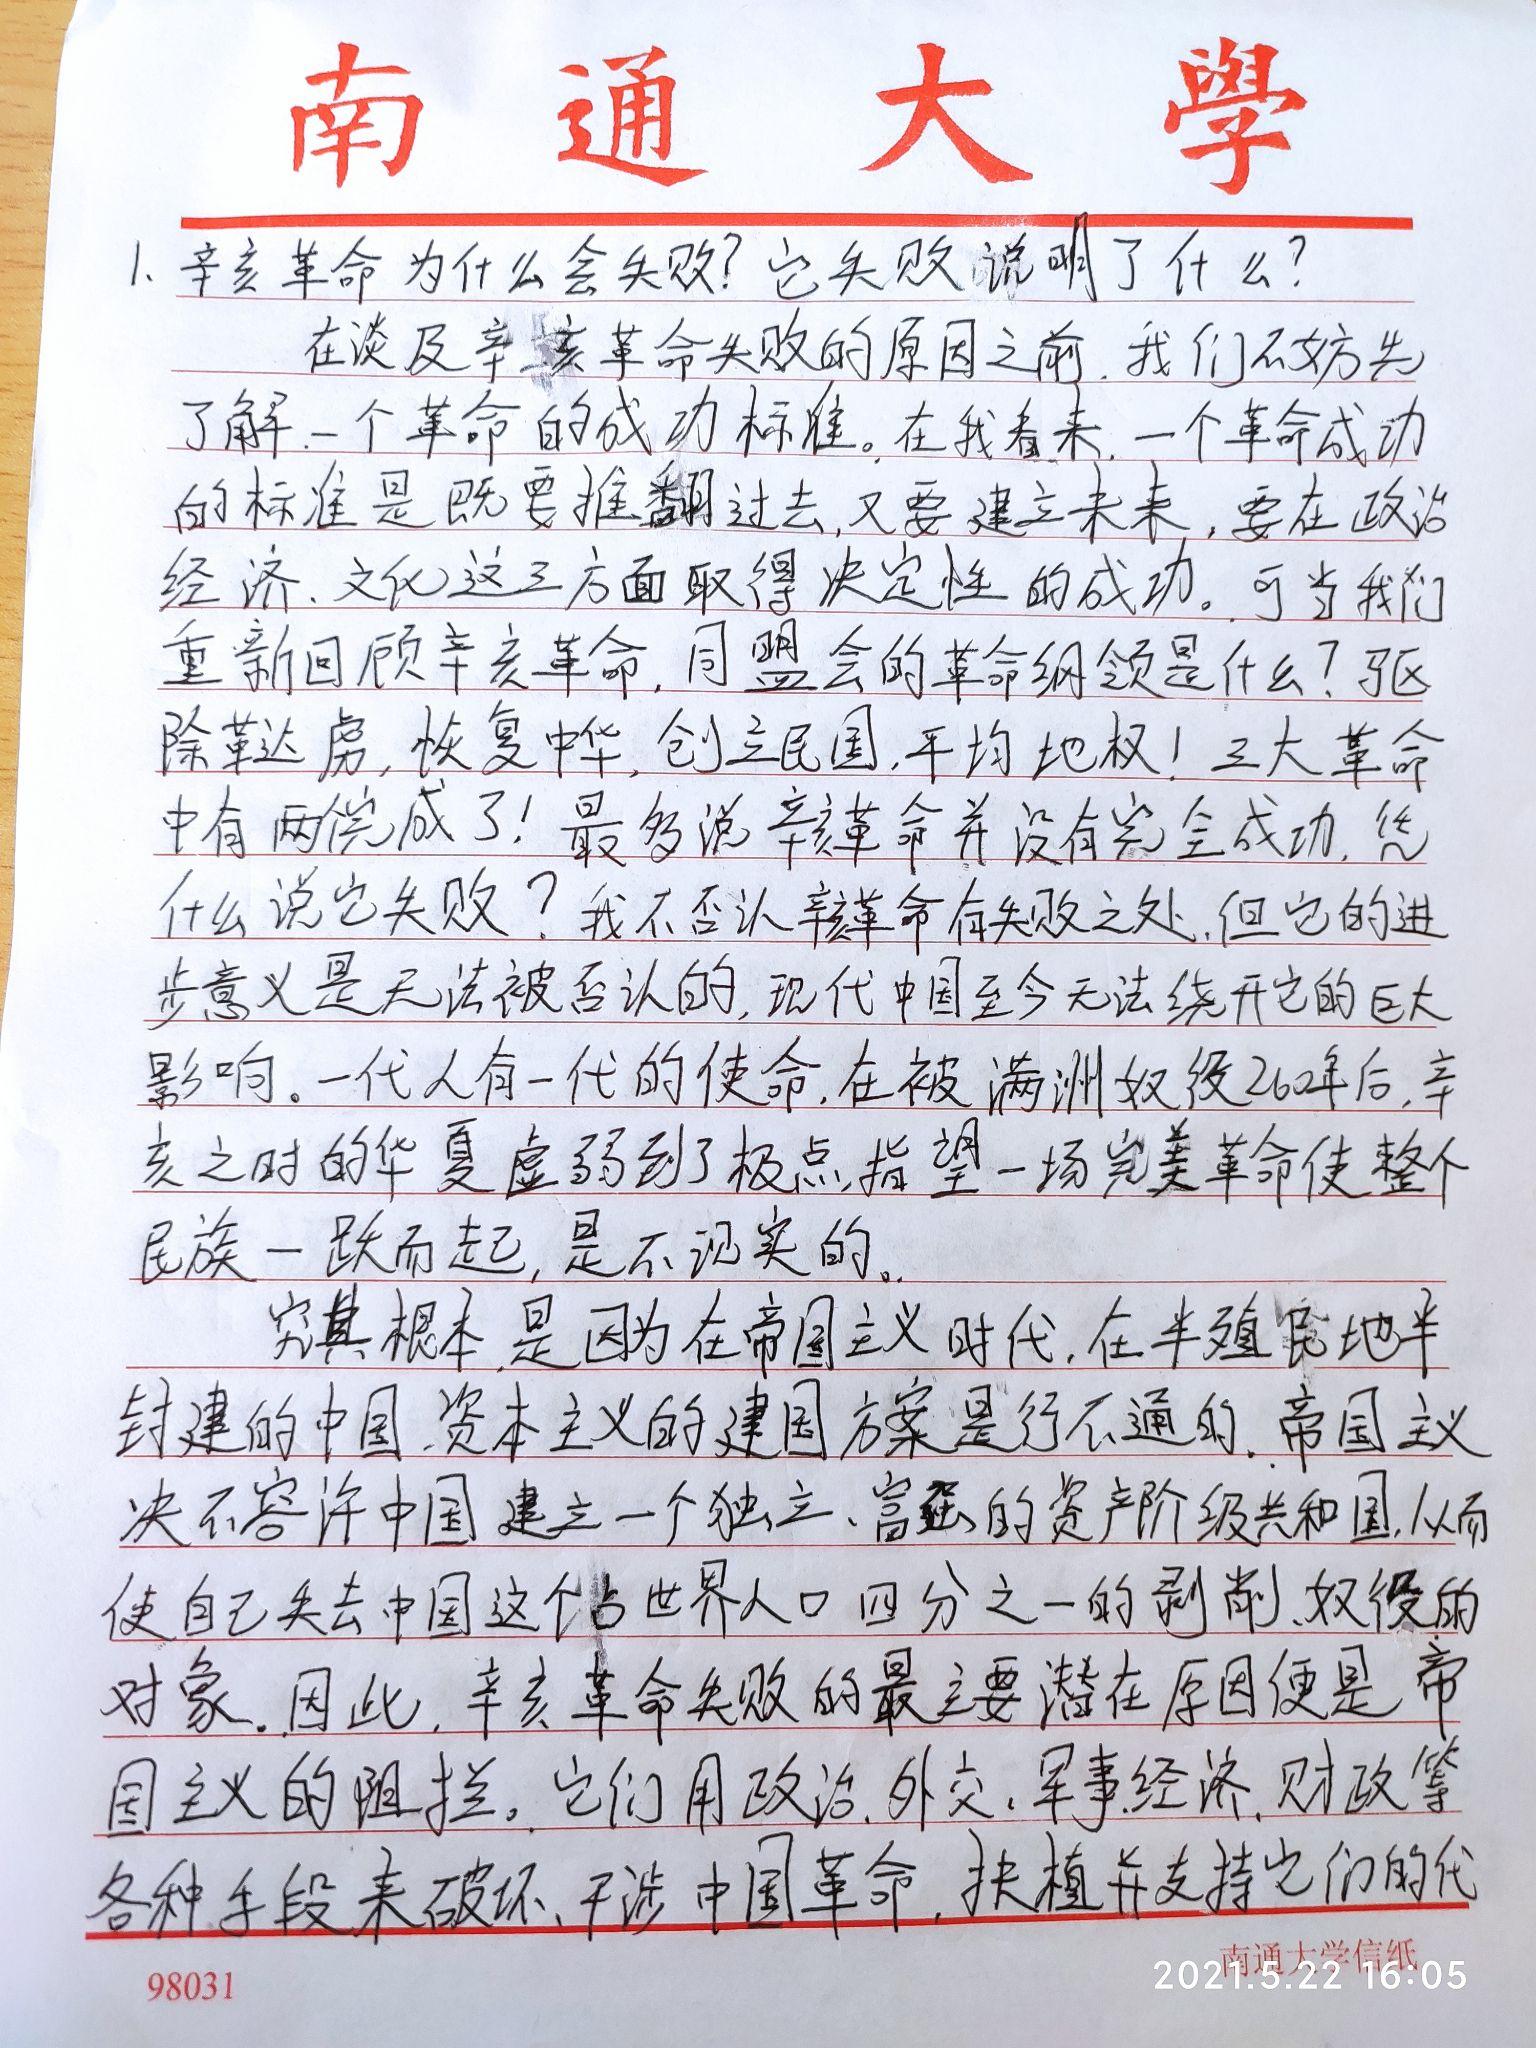 南通大學
1、辛亥革命为什么会失败？它失败说明了什么？
在谈及辛亥革命失败的原因之前，我们不妨先
了解一个革命的成功标准。在我看来，一个革命成功
的标准是既要推翻过去，又要建立未来，要在政治
经济、文化这三方面取得决定性的成功。可当我们
重新回顾辛亥革命，同盟会的革命纲领是什么？驱
除鞑虏，恢复中华，创立民国，平均地权！三大革命
中有两完成了！最多说辛亥革命并没有完全成功，凭
什么说它失败？我不否认辛亥革命有失败之处，但它的进
步意义是无法被否认的，现代中国至今无法绕开它的巨大
影响。一代人有一代的使命，在被满洲奴役260年后，辛
亥之时的华夏虚弱到了极点，指望一场完美革命使整个
民族一跃而起，是不现实的。
究其根本，是因为在帝国主义时代，在半殖民地半
封建的中国，资本主义的建国方案是行不通的，帝国主义
决不容许中国建立一个独立、富强的资产阶级共和国，从而
使自己失去中国这个占世界人口四分之一的剥削、奴役的
对象。因此，辛亥革命失败的最主要潜在原因便是帝
国主义的阻拦。它们用政治、外交、军事、经济、财政等
各种手段来破坏、干涉中国革命，扶植并支持它们的代
98031
南通大学信纸
2021.5.22 16:05